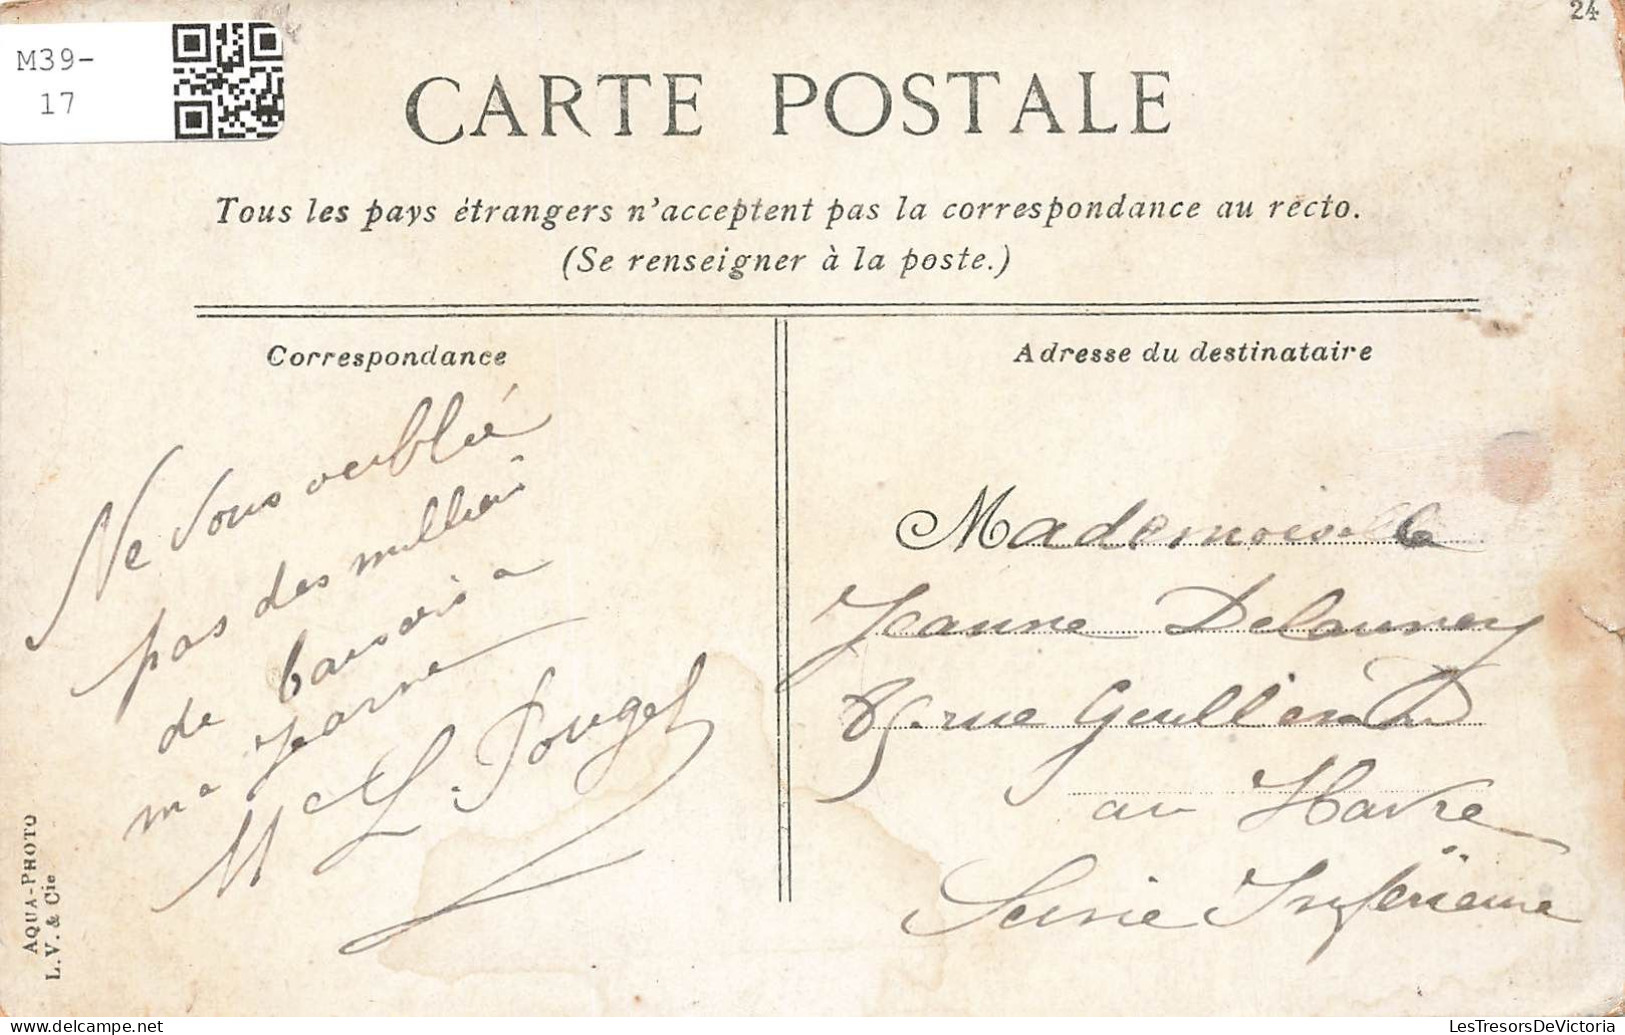 M39-
17
24
CARTE POSTALE
Tous les pays étrangers n'acceptent pas la correspondance au recto.
(Se renseigner à la poste.)
Correspondance
Ne vous oublié
pas des
de a
ma Jeanne
L. Pouget
Adresse du destinataire
Mademoiselle
Jeanne Delaunay
rue
au Havre
Seine Inférieure
AQUA-PHOTO
L.V. & Cie
delcampe.net
LesTresorsDeVictoria